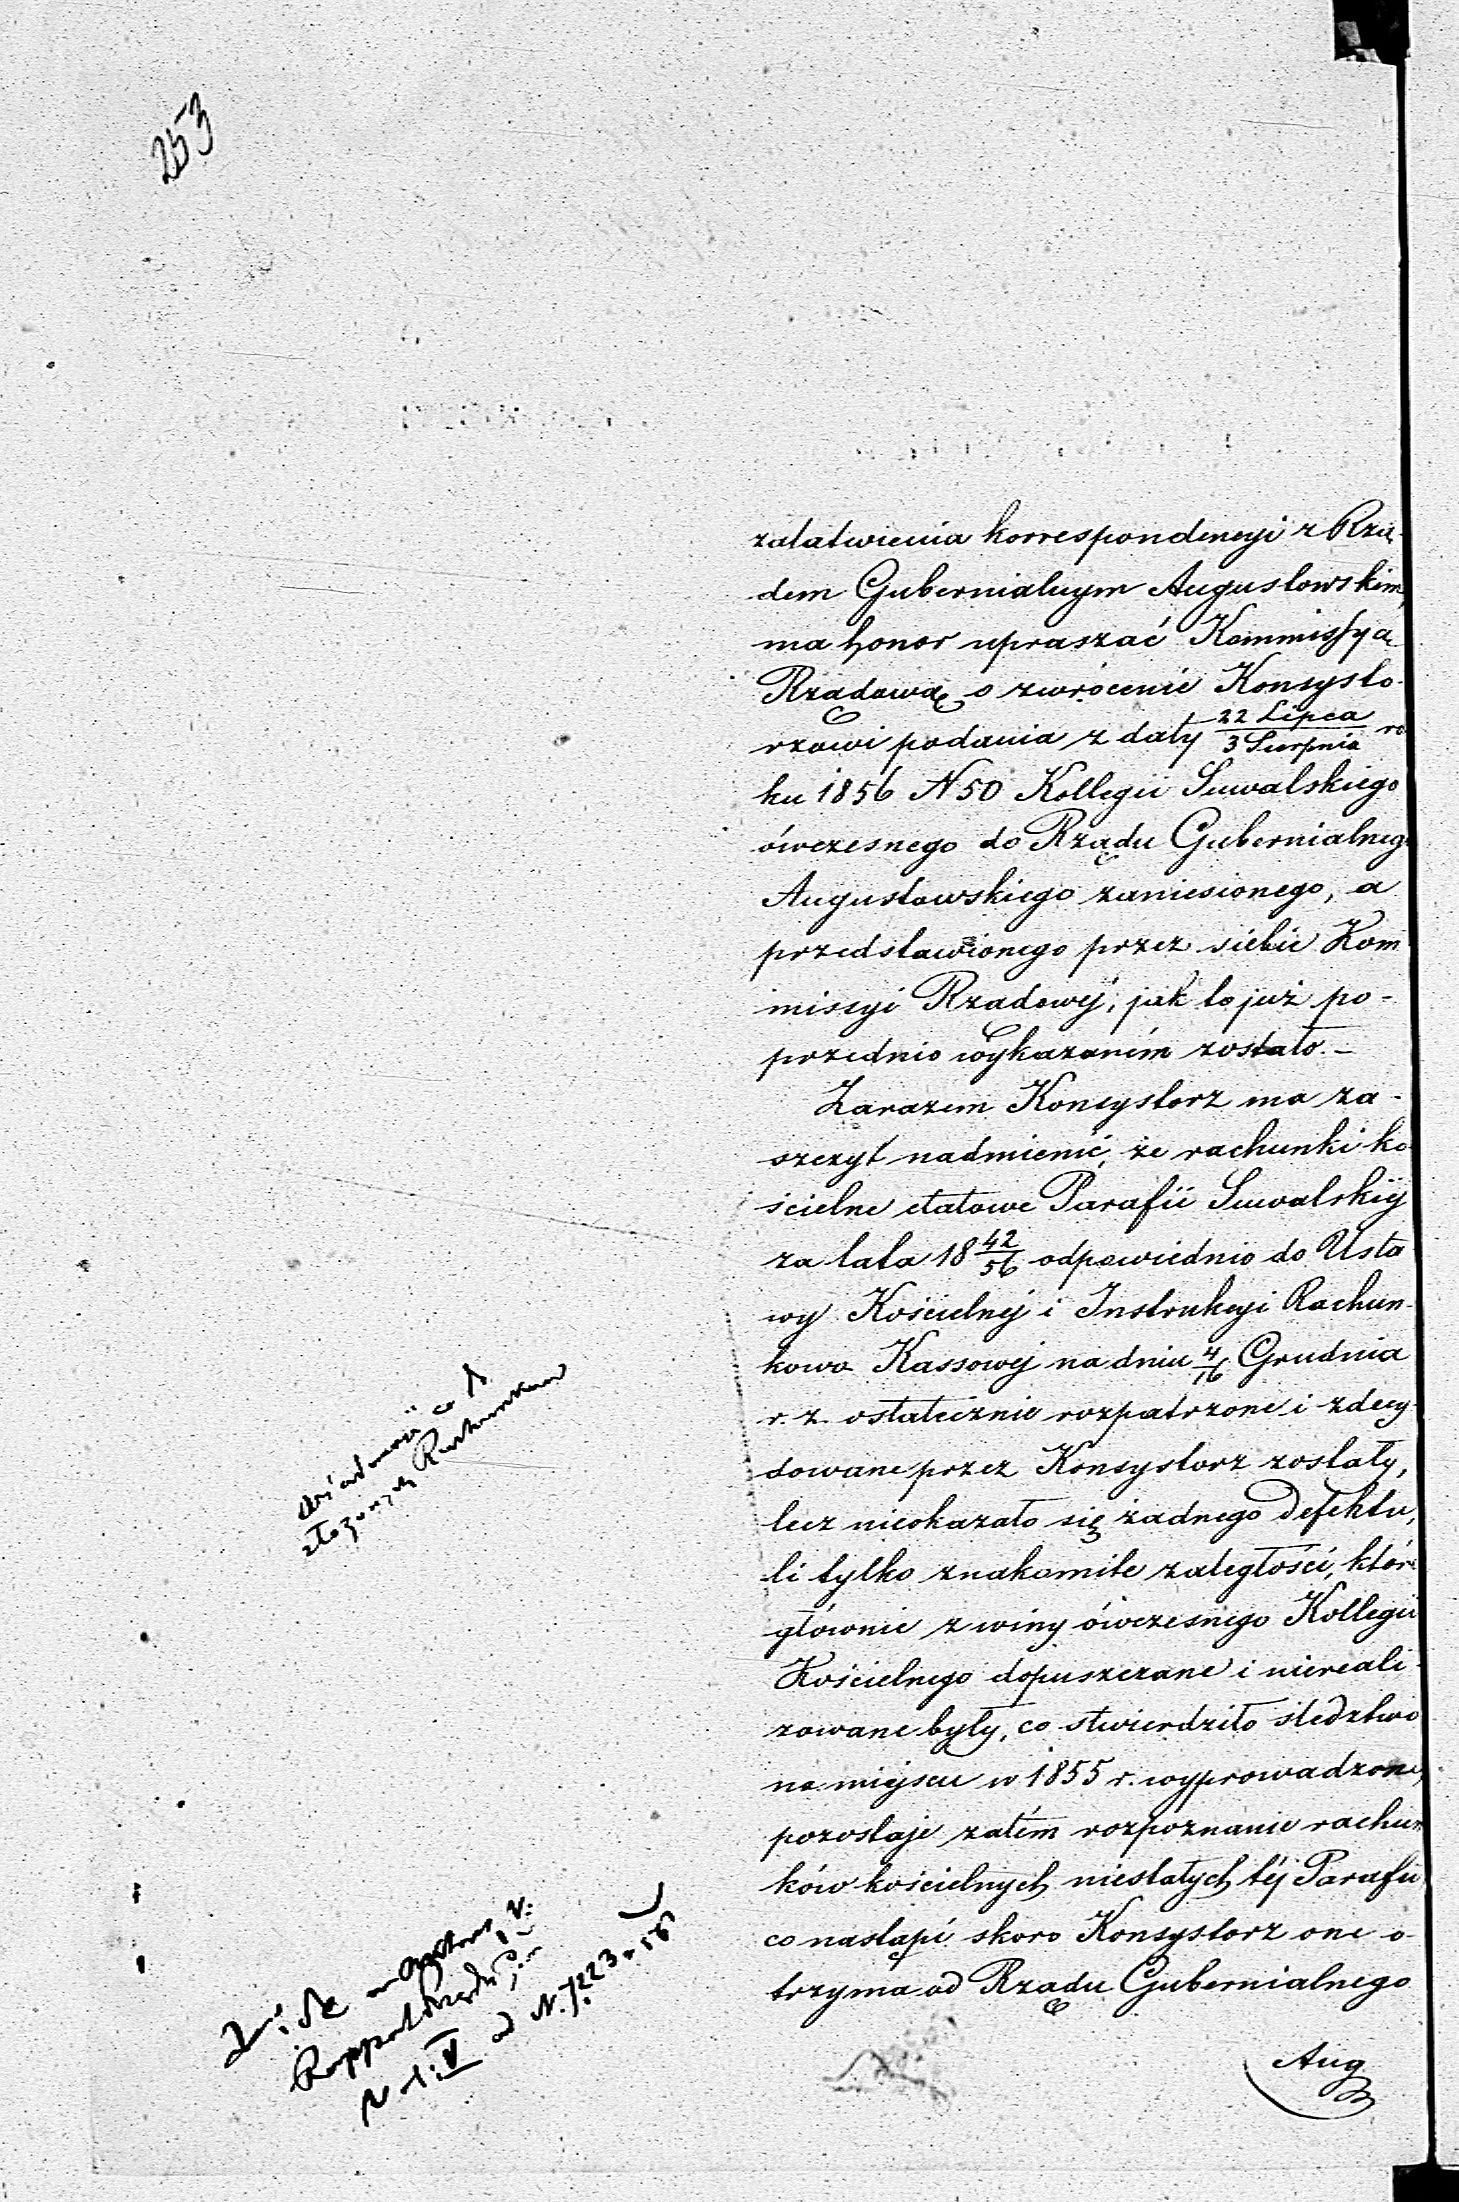 253
załatwienia korrespondencyi z Rzą-
dem Gubernialnym Augustowskim,
ma honor upraszać Kommissyą
Rządową o zwrócenie Konsysto-
rzowi podania z daty 22 Lipca/3 Sierpnia ro
ku 1856 N 50 Kollegii Suwalskiego
ówczesnego do Rządu Gubernialnego
Augustowskiego zaniesionego, a
przedstawionego przez siebie Kom
missyi Rządowej, jak to już po-
przednio wykazaném zostało. -
Zarazem Konsystorz ma za-
szczyt nadmienić, że rachunki ko
ścielne etatowe Parafii Suwalskiéj
za lata 18 42/56 odpowiednio do Usta
wy Kościelnej i Instrukcyi Rachun-
kowo Kassowej na dniu 4/16 Grudnia
r. z. ostatecznie rozpatrzone i zdecy-
dowane przez Konsystorz zostały,
lecz nieokazało się żadnego defektu,
li tylko znakomite zaległości, które
głównie z winy ówczesnego Kollegii
Kościelnego dopuszczane i niereali-
zowane były, co stwierdziło śledztwo
na miejscu w 1855 r. wyprowadzone,
pozostaje zatém rozpoznanie rachun
ków kościelnych niestałych téj Parafii
co nastąpi skoro Konsystorz one o-
trzyma od Rządu Gubernialnego
Aug
złożonych Rachunków
Rapport Rządu
od N. 7223